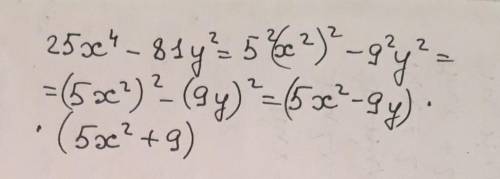 25x⁴ - 81y² = 5²(x²)² - 9²y² =
= (5x²)² - (9y)² = (5x² - 9y) ·
· (5x² + 9)